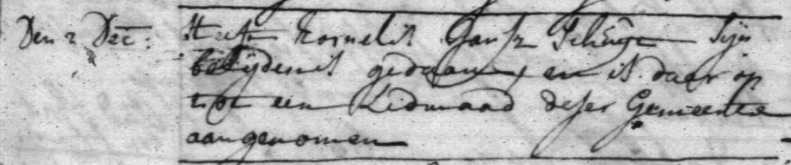 Den 2 Dec: Heeft Kornelis Jansz Schuijt Sijn
belijdenis gedaan, en is daar op
tot een Lidmaad deser Gemeente
aangenomen